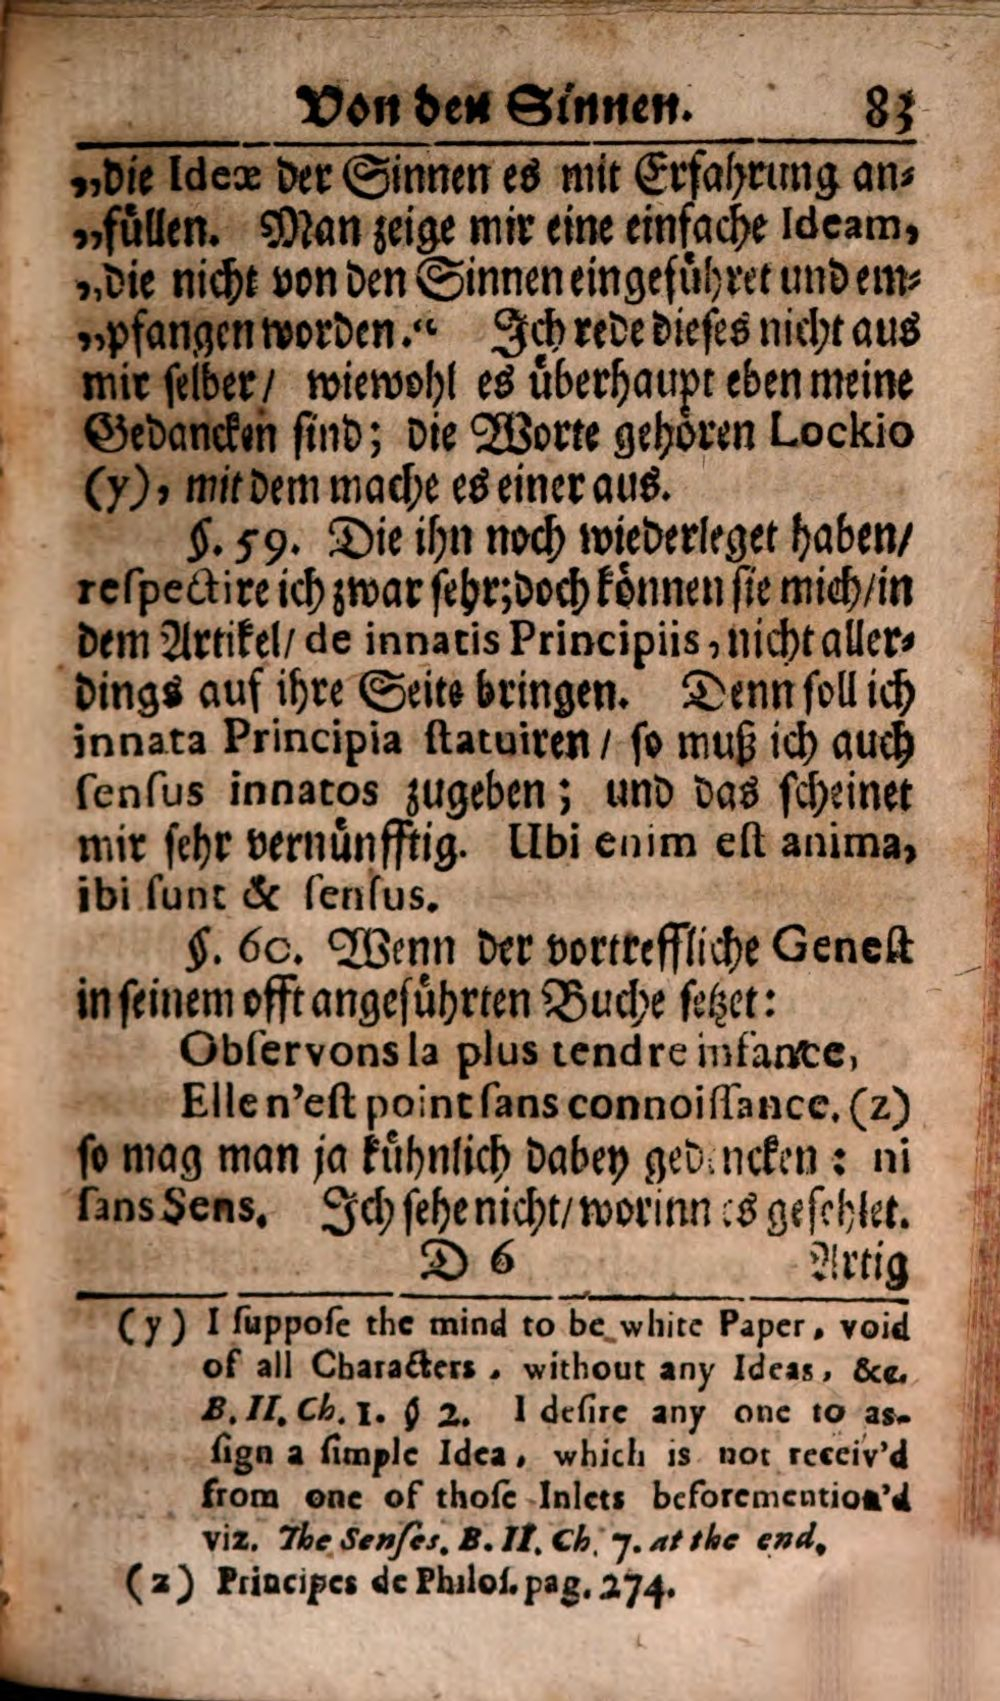 Von den Sinnen. 83
„die Ideæ der Sinnen es mit Erfahrung an-
„füllen. Man zeige mir eine einfache Ideam,
„die nicht von den Sinnen eingeführet und em-
„pfangen worden.“ Ich rede dieses nicht aus
mir selber/ wiewohl es überhaupt eben meine
Gedancken sind; die Worte gehören Lockio
(y), mit dem mache es einer aus.
§. 59. Die ihn noch wiederleget haben/
respectire ich zwar sehr; doch können sie mich/ in
dem Artikel/ de innatis Principiis, nicht aller-
dings auf ihre Seite bringen. Denn soll ich
innata Principia statuiren / so muß ich auch
sensus innatos zugeben; und das scheinet
mir sehr vernünfftig. Ubi enim est anima,
ibi sunt & sensus.
§. 60. Wenn der vortreffliche Genest
in seinem offt angeführten Buche setzet:
Observons la plus tendre infance,
Elle n'est point sans connoissance. (z)
so mag man ja kühnlich dabey gedencken: ni
sans Sens. Ich sehe nicht/ worinn es gefehlet.
D 6 Artig
(y) I suppose the mind to be white Paper, void
of all Characters, without any Ideas, &c.
B. II. Ch. 1. § 2. I desire any one to as-
sign a simple Idea, which is not receiv'd
from one of those Inlets beforemention'd
viz. The Senses. B. II. Ch. 7. at the end.
(z) Principes de Philos. pag. 274.